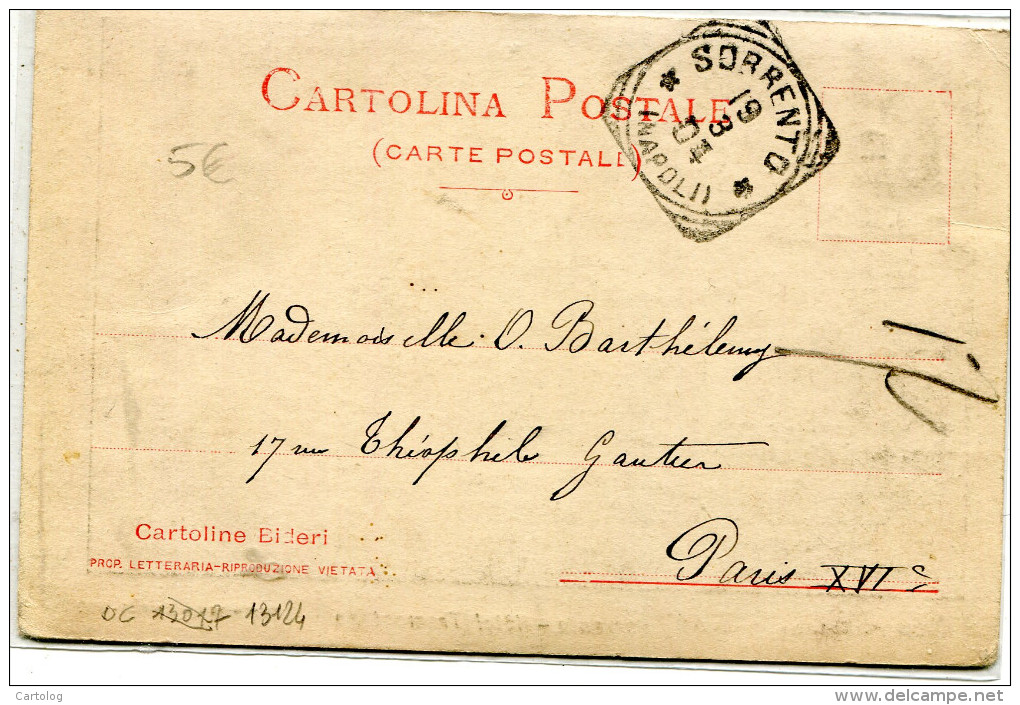 CARTOLINA POSTALE
(CARTE POSTALE)
SORRENTO
19
3
04
(NAPOLI)
5€
Mademoiselle O. Barthélemy
17 rue Théophile Gautier
Paris XVIe
Cartoline Bideri
PROP. LETTERARIA-RIPRODUZIONE VIETATA
DC 13017 13124
Cartolog
www.delcampe.net